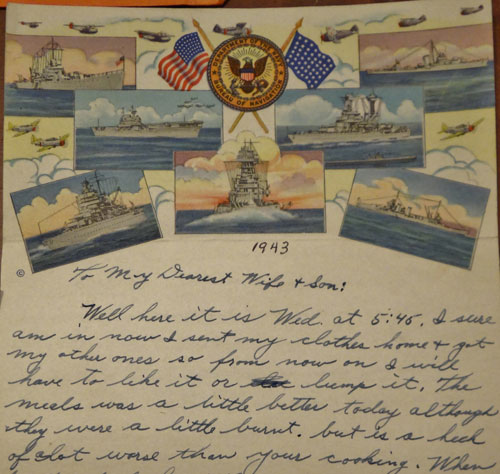 DEPARTMENT OF THE NAVY
BUREAU OF NAVIGATION
1943
©
To My Dearest Wife + Son:
Well here it is Wed. at 5:45. I sure
am in now I sent my clothes home + got
my other ones so from now on I will
have to like it or lump it. The
meals was a little better today although
they were a little burnt. but is a heck
of clot worse than your cooking. When